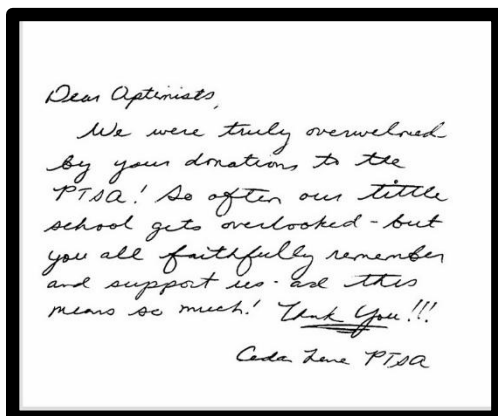 Dear Optimists,
We were truly overwelmed
by your donations to the
PTSA! So often our little
school gets overlooked - but
you all faithfully remember
and support us - and this
means so much! Thank You!!!
Cedar Lane PTSA